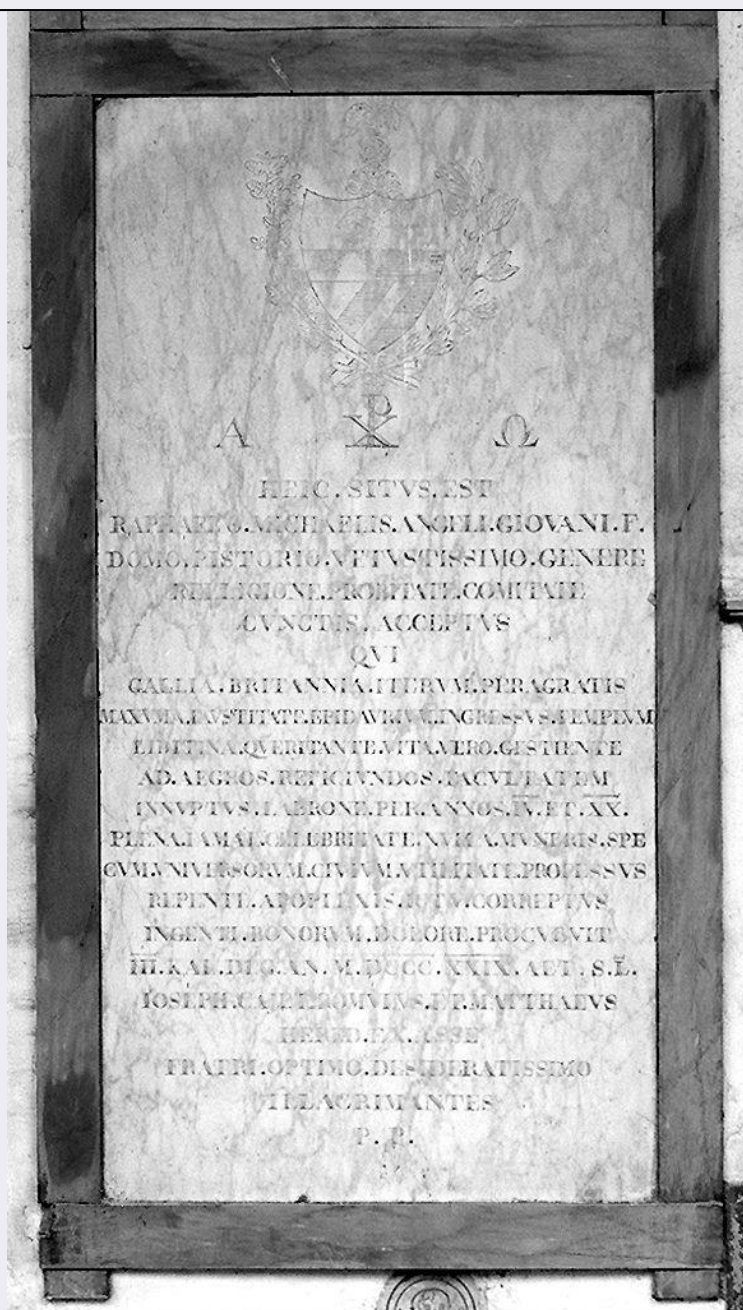 Α ☧ Ω
HEIC . SITVS . EST
RAPHAELO . MICHAELIS . ANGELI . GIOVANI . F .
DOMO . PISTORIO . VETVSTISSIMO . GENERE
RELLIGIONE . PROBITATE . COMITATE
CVNCTIS . ACCEPTVS
QVI
GALLIA . BRITANNIA . ITERVM . PERAGRATIS
MAXVMA . FAVSTITATE . EPIDAVRIVM . INGRESSVS . TEMPLVM
LIBITINA . QVERITANTE . VITA . VERO . GESTIENTE
AD . AEGROS . REFICIVNDOS . FACVLTATEM
INNVPTVS . LABRONE . PER . ANNOS . IV . ET . XX .
PLENA . CELEBRITATE . MVNERIS . SPE
CVM . VNIVERSORVM . CIVIVM . VTILITATE . PROFESSVS
REPENTE . APOPLEXIS . ICTV . CORREPTVS
INGENTI . BONORVM . DOLORE . PROCVBVIT
III . KAL . DEC . AN . M . DCCC . XXIX . AET . S . L .
IOSEPH . ET . MATTHAEVS
HERED . EX . ASSE
FRATRI . OPTIMO . DESIDERATISSIMO
ILLACRIMANTES
P . P .